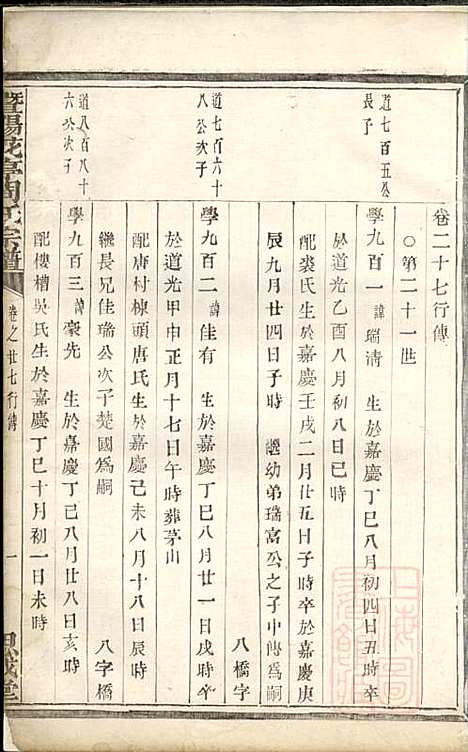 卷二十七行傳
○第二十一世
道七百五公長子
學九百一 諱瑞淸 生於嘉慶丁巳八月初四日丑時卒
於道光乙酉八月初八日巳時
配裘氏生於嘉慶壬戌二月廿五日子時卒於嘉慶庚
辰九月廿四日子時 繼幼弟瑞富公之子中傳爲嗣
道七百六十八公次子
學九百二 諱佳有 生於嘉慶丁巳八月廿一日戌時卒 八橋字
於道光甲申正月十七日午時葬茅山
配唐村棟頭唐氏生於嘉慶己未八月十八日辰時
繼長兄佳瑞公次子楚國爲嗣 八字橋
道八百八十六公次子
學九百三 諱豪先 生於嘉慶丁巳八月廿八日亥時
配樓槽吳氏生於嘉慶丁巳十月初一日未時
暨陽花亭周氏宗譜 卷之廿七行傳 一